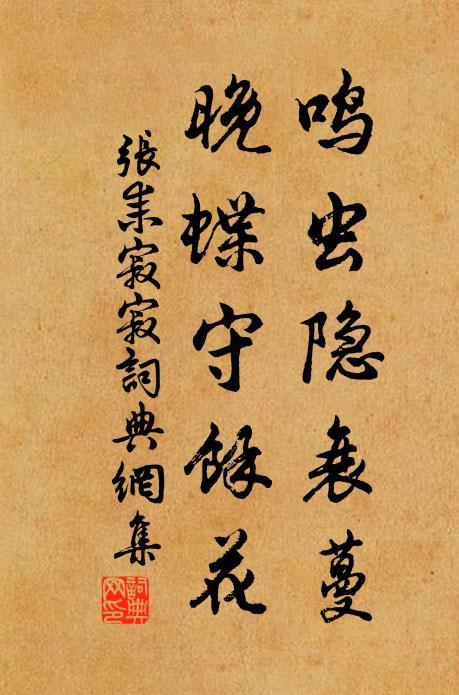 鸣虫隐衰蔓
晚蝶守餘花
張耒寂寂詞典網集
詞典网印